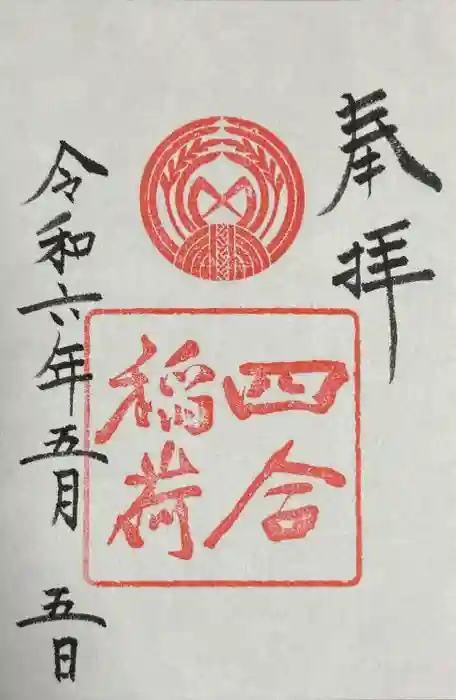 奉拝
四合
稲荷
令和六年五月五日